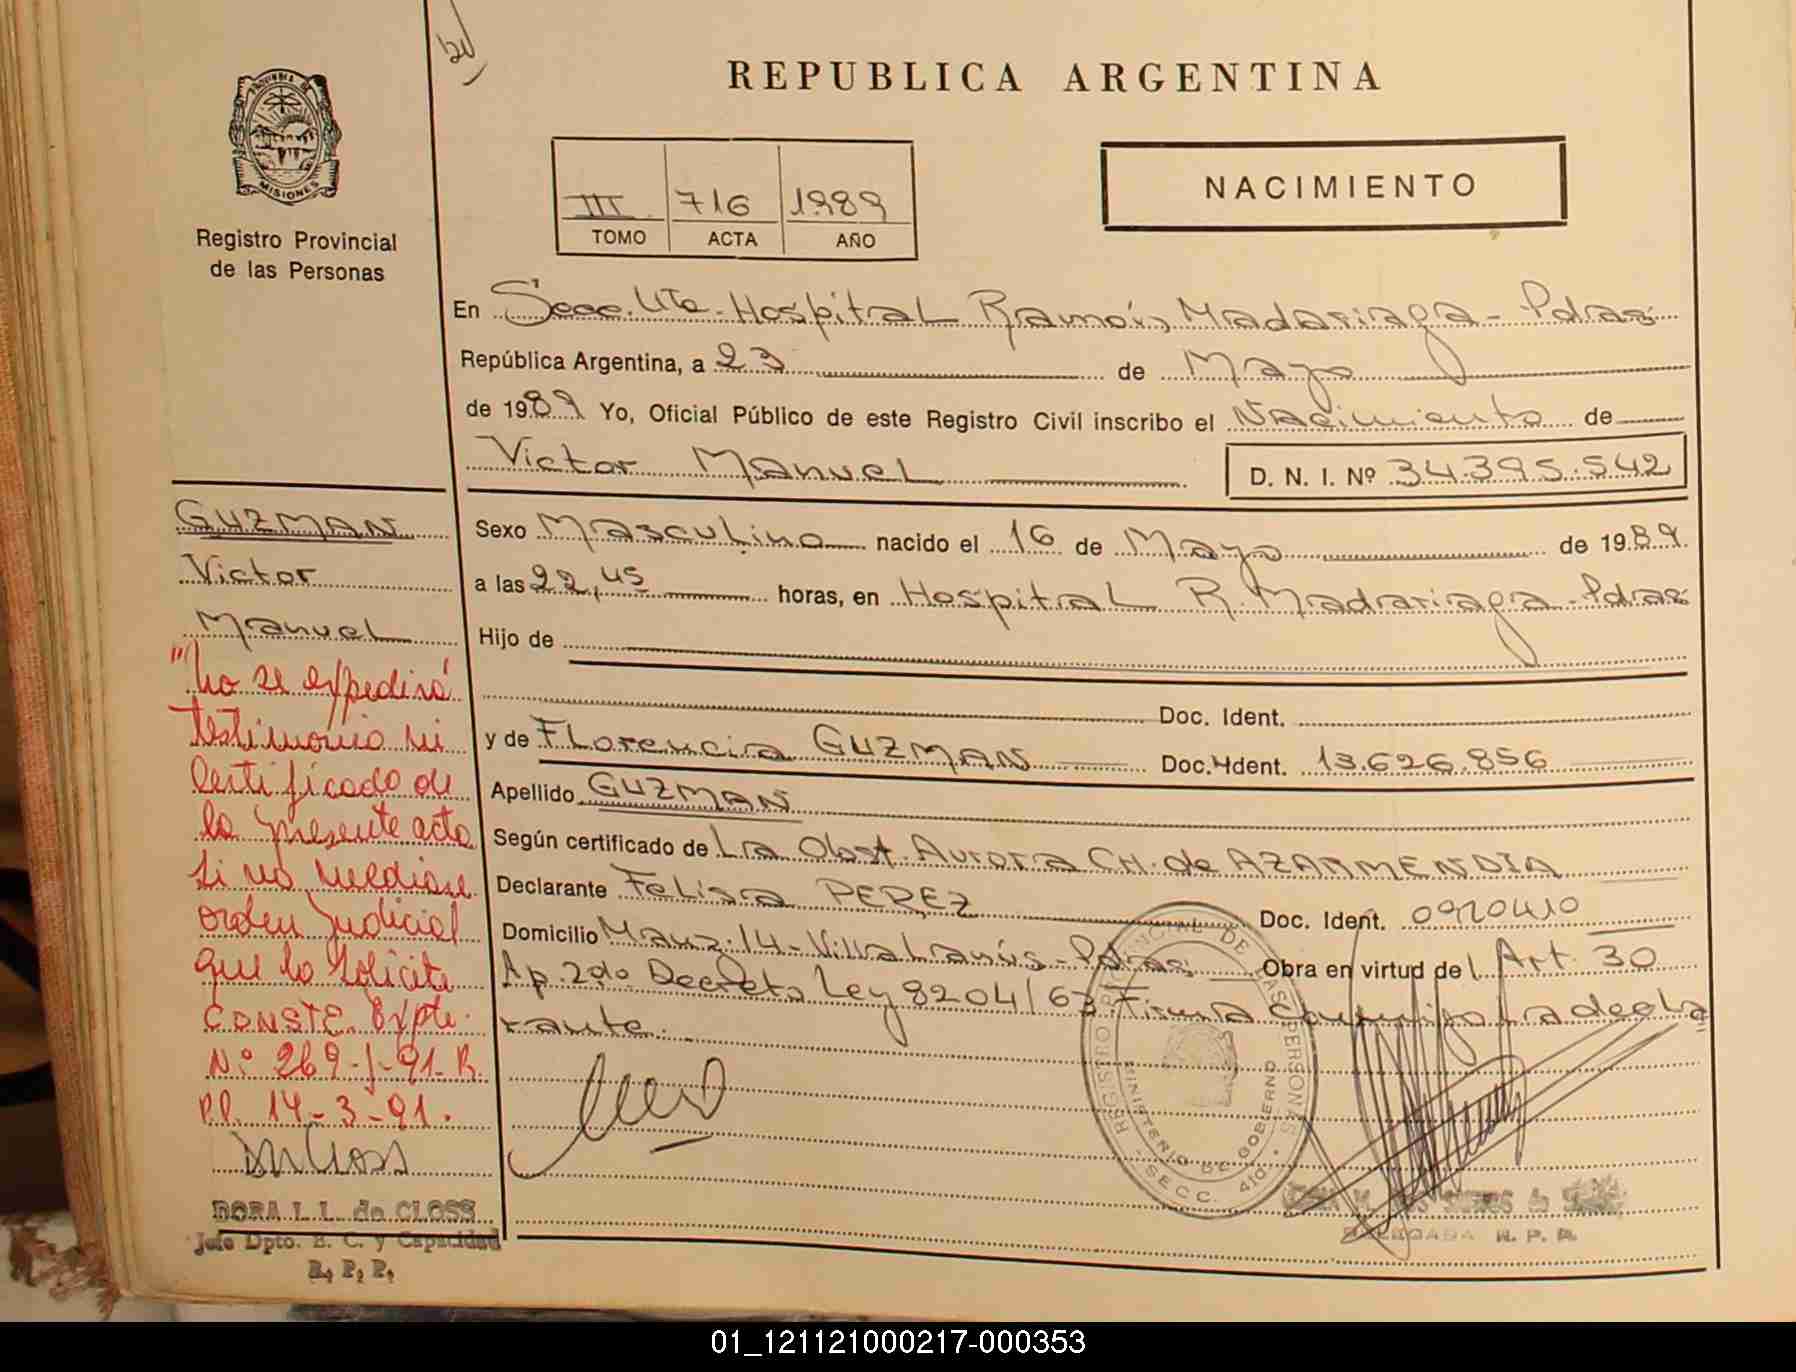 REPUBLICA ARGENTINA
PROVINCIA DE
MISIONES
Registro Provincial
de las Personas
III 716 1989
TOMO ACTA AÑO
NACIMIENTO
En Secc. 4ta. Hospital Ramón Madariaga - Pdas
República Argentina, a 23 de Mayo
de 1989 Yo, Oficial Público de este Registro Civil inscribo el Nacimiento de
Victor Manuel D. N. I. Nº 34.395.542
Sexo Masculino nacido el 16 de Mayo de 1989
a las 22,45 horas, en Hospital R. Madariaga - Pdas
Hijo de
Doc. Ident.
y de Florencia GUZMAN Doc. Ident. 13.626.856
Apellido GUZMAN
Según certificado de La Obst. Aurora CH. de AZARMENDIA
Declarante Felisa PEREZ Doc. Ident. 0920410
Domicilio Manz. 14 - Villa Lanús - Pdas Obra en virtud del Art. 30
Ap. 2do. Decreto Ley 8204/63. Firma conmigo la decla
rante.
GUZMAN
Victor
Manuel
"No se expedirá
testimonio ni
Certificado de
la presente acta
si no mediare
orden judicial
que lo solicite
CONSTE. Expte.
Nº 269-J-91-R.
P.P. 14-3-91.
DORA I. L. de CLOSS
Jefe Dpto. E. C. y Capacidad
R. P. P.
REGISTRO PROVINCIAL DE LAS PERSONAS
MINISTERIO DE GOBERNO
SECC. 4TO.
DELEGADA R. P. P.
01_121121000217-000353